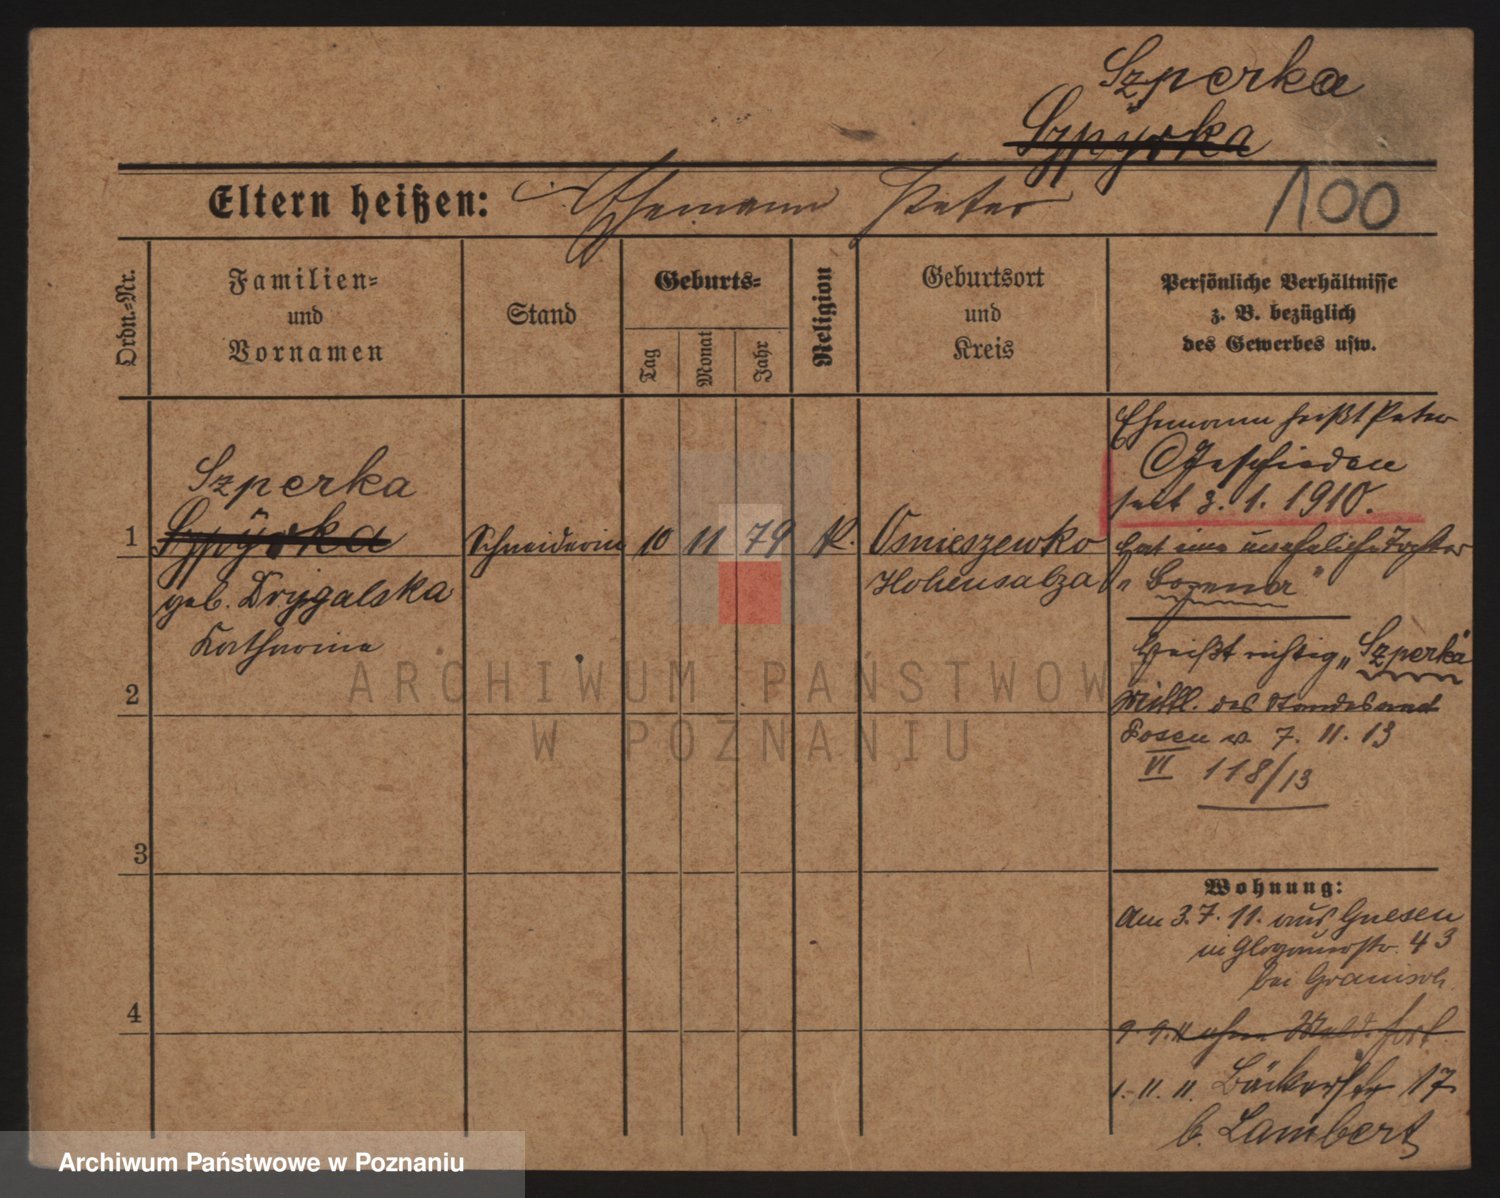 Szperka
Szpyrka
Eltern heißen: Ehemann Peter
100
Ordn.-Nr.
Familien-
und
Vornamen
Stand
Geburts-
Tag
Monat
Jahr
Religion
Geburtsort
und
Kreis
Persönliche Verhältnisse
z. B. bezüglich
des Gewerbes usw.
Ehemann heißt Peter
Geschieden
seit 3. 1. 1910.
Szperka
1 Szpyrka Schneiderin 10 11 79 K. Osnieszewko
hat eine uneheliche Tochter
geb. Drygalska
Hohensalza
Katharina
Heißt richtig „Szperka"
2
Mittl. des Standesamt
Posen v. 7. 11. 13
VI 118/13
3
Wohnung:
Am 3. 7. 11. aus Gnesen
in Glogauerstr. 43
bei
4
9. 9. 11 ohne Meld. fort
1. 11. 11. Bäckerstr 17
b. Lambert
ARCHIWUM PAŃSTWOWE
W POZNANIU
Archiwum Państwowe w Poznaniu